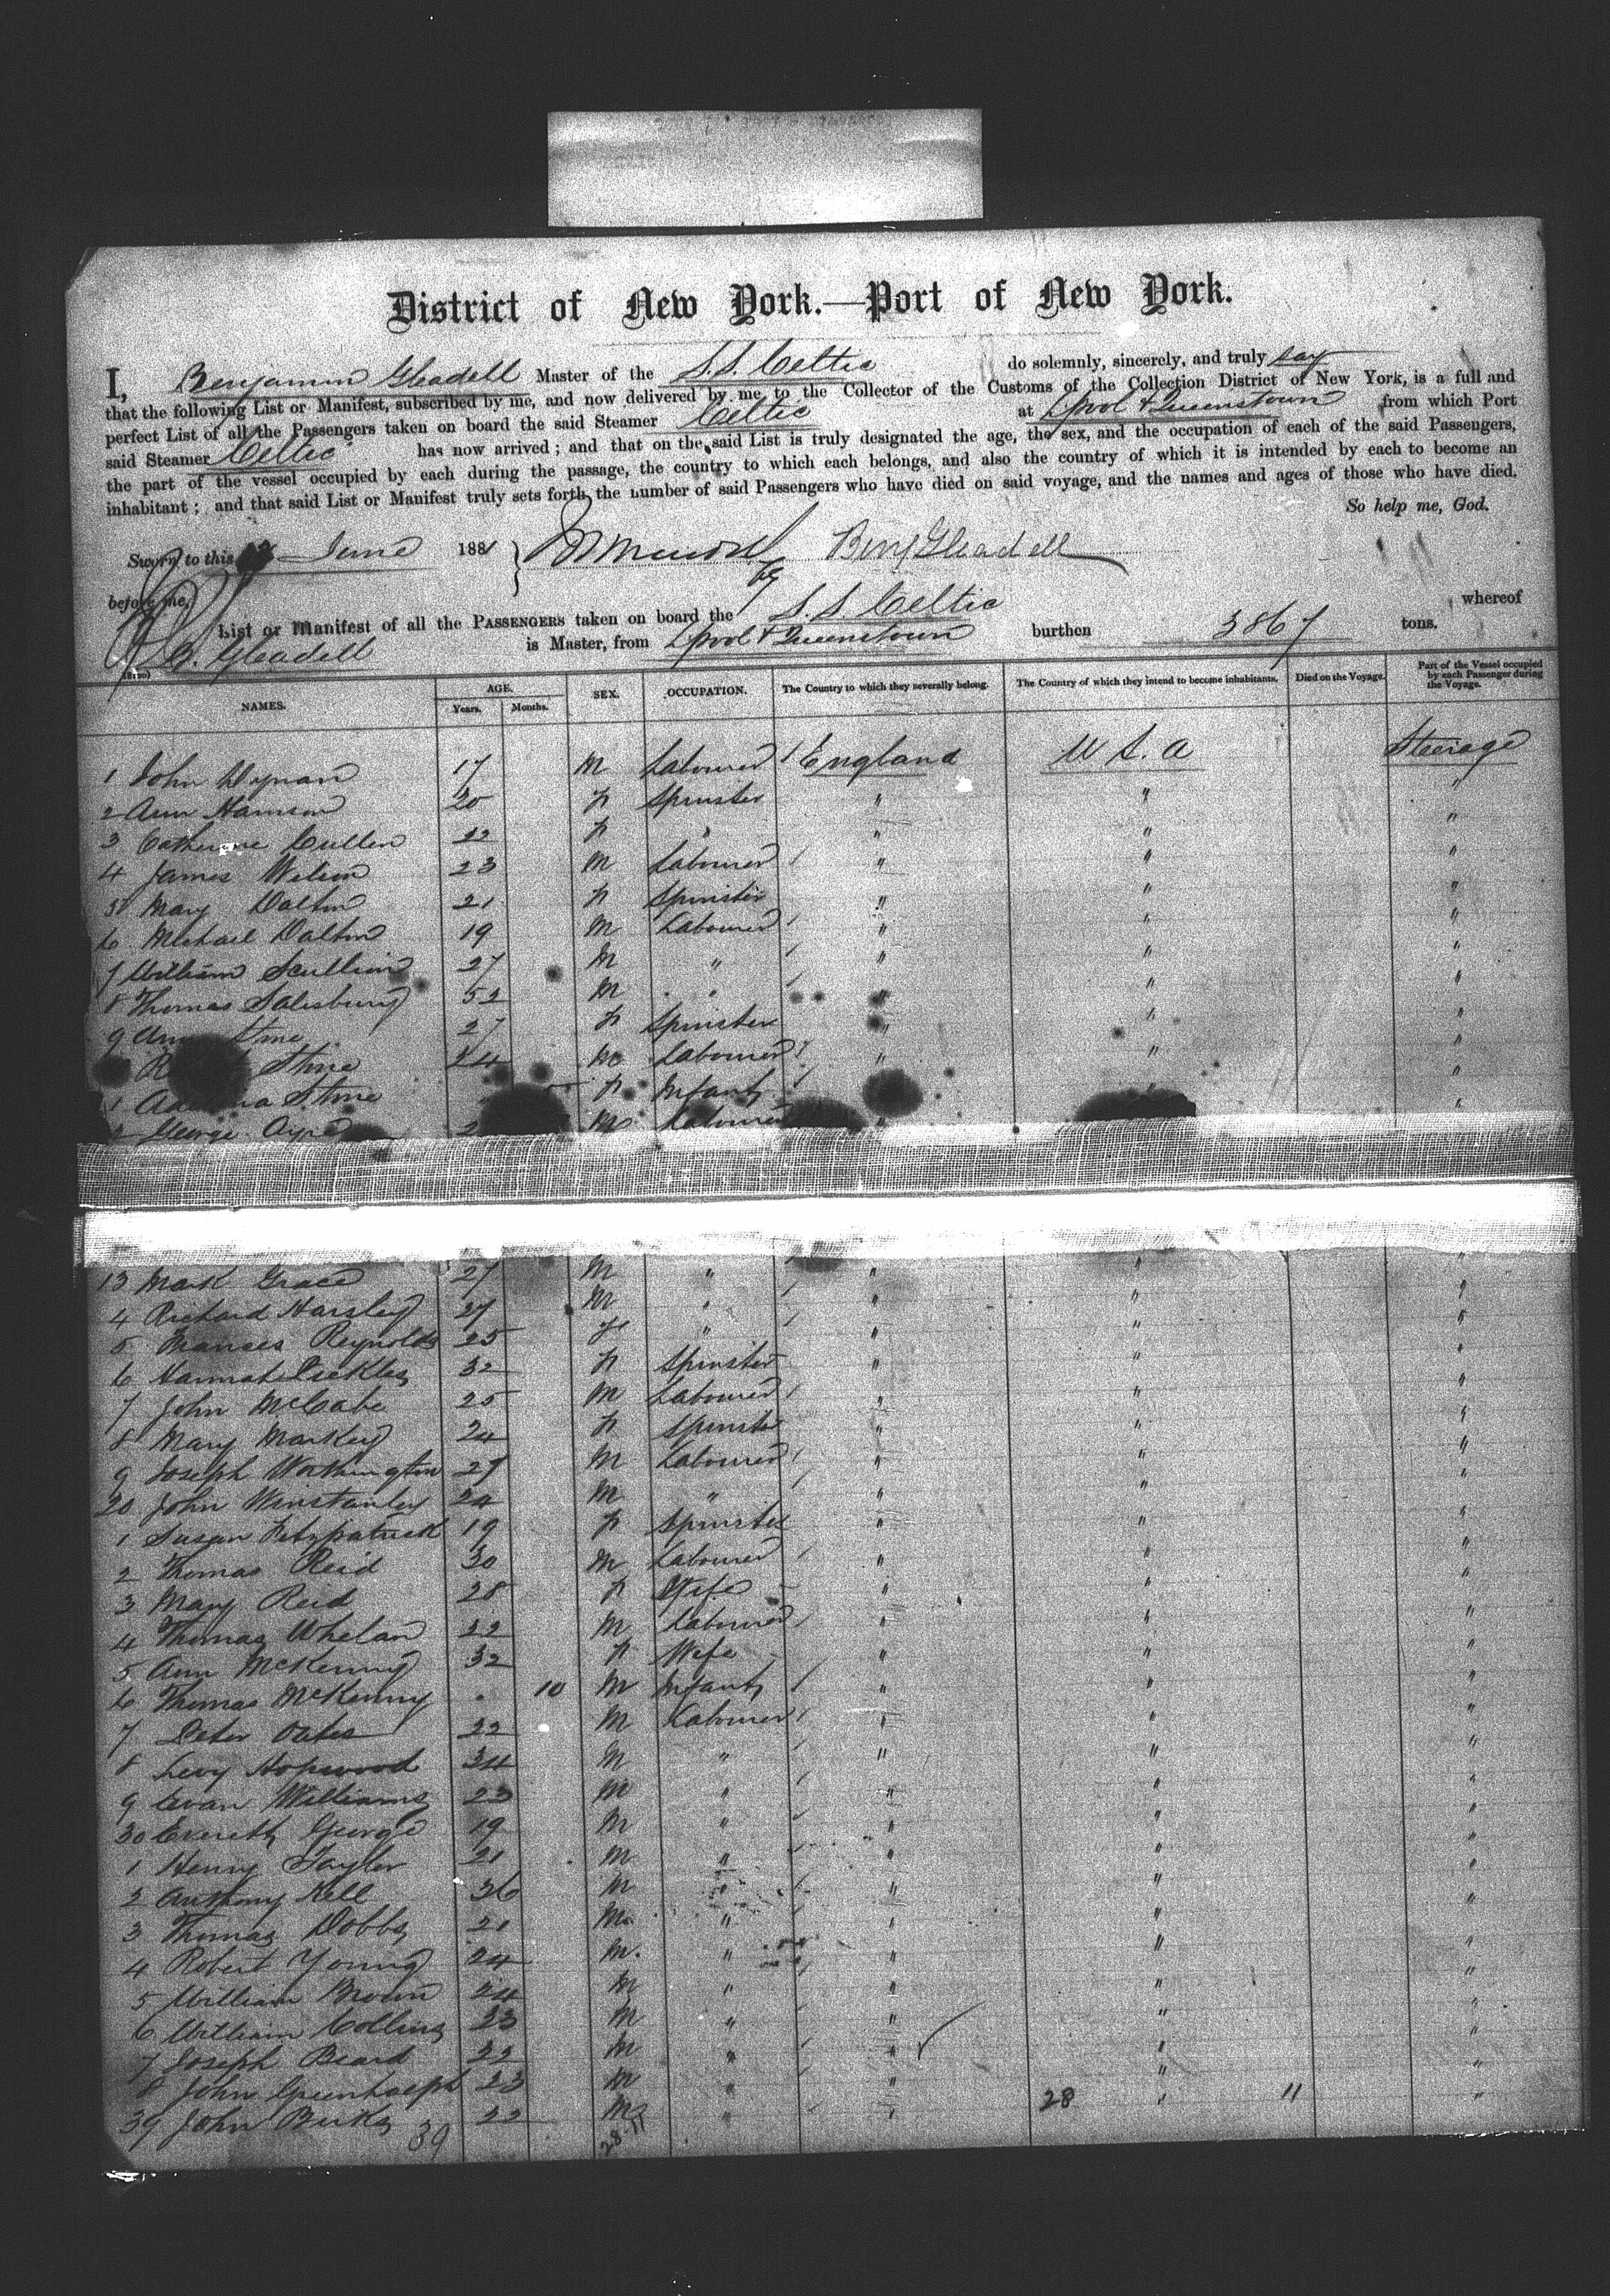 District of New York.—Port of New York.
I, Benjamin Gleadell Master of the S.S. Celtic do solemnly, sincerely, and truly say
that the following List or Manifest, subscribed by me, and now delivered by me to the Collector of the Customs of the Collection District of New York, is a full and
perfect List of all the Passengers taken on board the said Steamer Celtic at L'pool & Queenstown from which Port
said Steamer Celtic has now arrived; and that on the said List is truly designated the age, the sex, and the occupation of each of the said Passengers,
the part of the vessel occupied by each during the passage, the country to which each belongs, and also the country of which it is intended by each to become an
inhabitant; and that said List or Manifest truly sets forth the number of said Passengers who have died on said voyage, and the names and ages of those who have died.
So help me, God.
Sworn to this June 1881 Benj Gleadell
before me,
List or Manifest of all the PASSENGERS taken on board the S.S. Celtic whereof
B. Gleadell is Master, from L'pool & Queenstown burthen 3867 tons.
NAMES. AGE. Years. Months. SEX. OCCUPATION. The Country to which they severally belong. The Country of which they intend to become inhabitants. Died on the Voyage. Part of the Vessel occupied by each Passenger during the Voyage.
1 John Dynan 17 M Labourer England U S. A Steerage
2 Ann 20 F Spinster " " "
3 Catherine Cullen 22 F " " " "
4 James Wilson 23 M Labourer " " "
5 Mary Dalton 21 F Spinster " " "
6 Michael Dalton 19 M Labourer " " "
7 William Scullion 27 M " " " "
8 Thomas Salisbury 52 M " " " "
9 Stone 27 F Spinster " " "
Stone 24 M Labourer " " "
1 Stone F Infant " "
George M Labourer " "
13 Mark Grace 27 M " " " "
4 Richard Harsley 27 M " " " "
5 Frances Reynolds 25 F " " " "
6 Hannah Pickles 32 F Spinster " " "
7 John McCabe 25 M Labourer " " "
8 Mary Markey 24 F Spinster " " "
9 Joseph Worthington 27 M Labourer " " "
20 John Winstanley 24 M " " " "
1 Susan Fitzpatrick 19 F Spinster " " "
2 Thomas Reid 30 M Labourer " " "
3 Mary Reid 28 F Wife " " "
4 Thomas Whelan 22 M Labourer " " "
5 Ann McKenny 32 F Wife " " "
6 Thomas McKenny 10 M Infant " " "
7 Peter Oates 22 M Labourer " " "
8 Levy Hopwood 34 M " " " "
9 Evan Williams 23 M " " " "
30 Everett George 19 M " " " "
1 Henry Taylor 21 M " " " "
2 Anthony Kell 36 M " " " "
3 Thomas Dobbs 21 M " " " "
4 Robert Young 24 M " " " "
5 William Brown 24 M " " " "
6 William Collins 23 M " " " "
7 Joseph Beard 22 M " " " "
8 John 23 M " " " "
39 John Birks 22 M " " " "
39 28-11 28 11